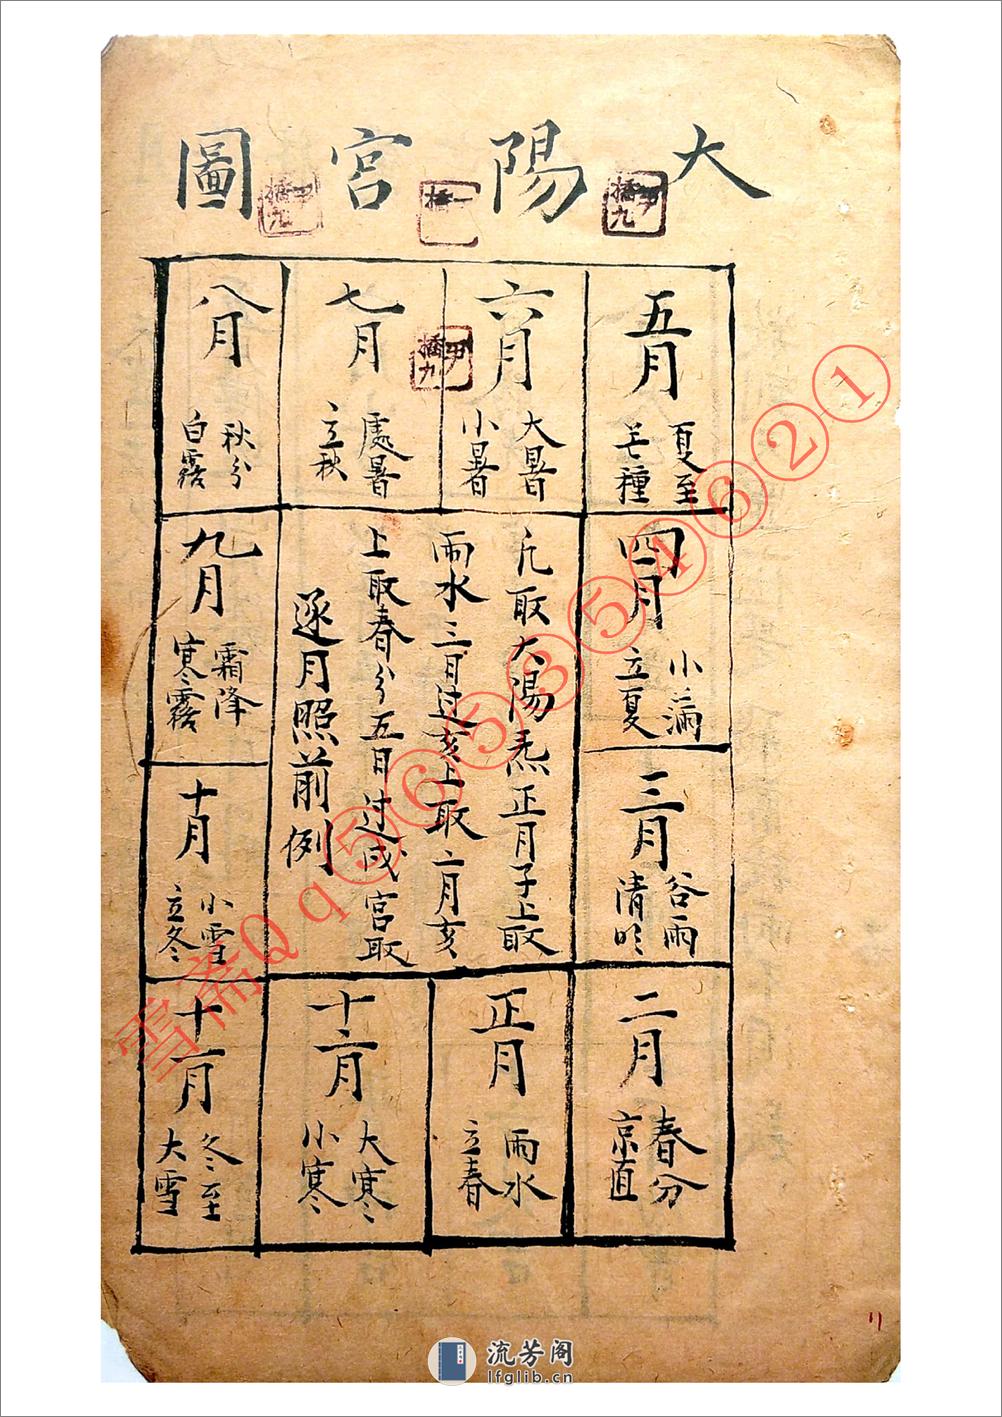 大陽宮圖
五月
夏至
芒種
六月
大暑
小暑
七月
處暑
立秋
八月
秋分
白露
四月
小滿
立夏
凡取大陽炁正月子上取
雨水三日过亥上取二月亥
上取春分五日过戌宮取
逐月照前例
九月
霜降
寒露
三月
谷雨
清明
十月
小雪
立冬
二月
春分
京直
正月
雨水
立春
十二月
大寒
小寒
十一月
冬至
大雪
雪斋Qq⑤⑥⑤③⑤④⑥②①
流芳阁
lfglib.cn
11